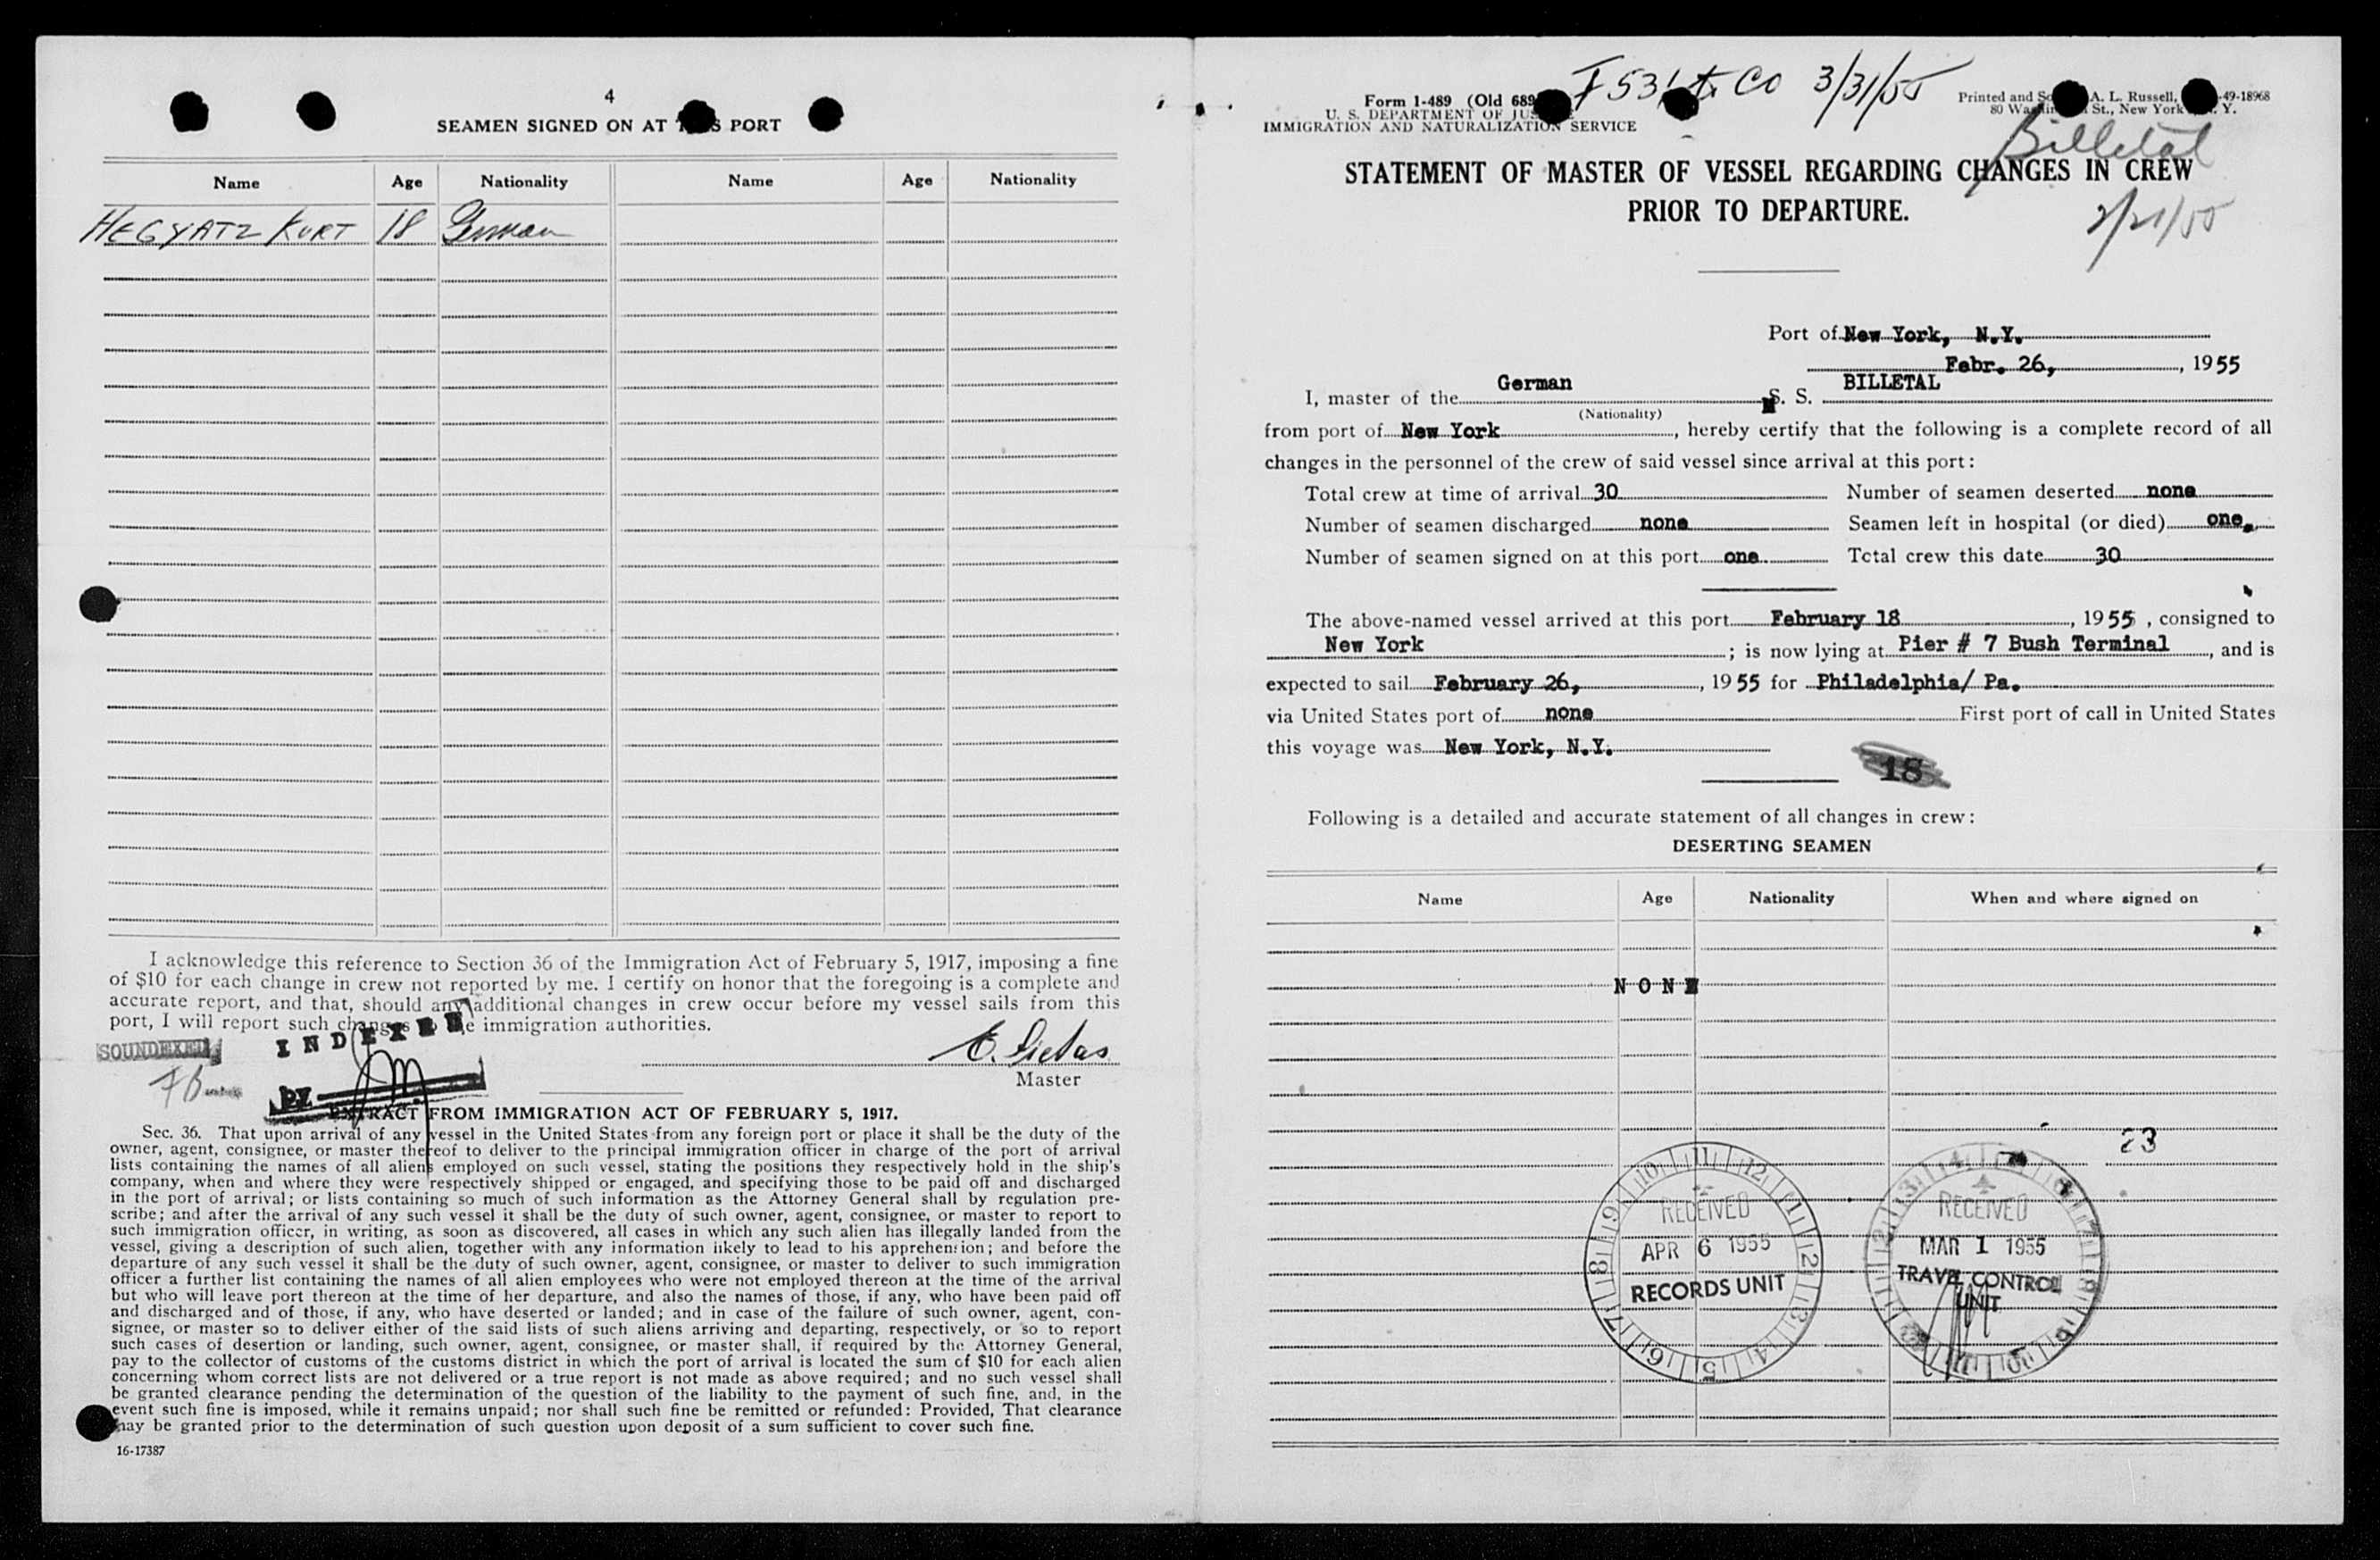 4
SEAMEN SIGNED ON AT PORT
Name Age Nationality Name Age Nationality
HEGYATZ KURT 18 German
I acknowledge this reference to Section 36 of the Immigration Act of February 5, 1917, imposing a fine
of $10 for each change in crew not reported by me. I certify on honor that the foregoing is a complete and
accurate report, and that, should any additional changes in crew occur before my vessel sails from this
port, I will report such changes immigration authorities.
SOUNDEXED
INDEXED
by
Master
EXTRACT FROM IMMIGRATION ACT OF FEBRUARY 5, 1917.
Sec. 36. That upon arrival of any vessel in the United States from any foreign port or place it shall be the duty of the
owner, agent, consignee, or master thereof to deliver to the principal immigration officer in charge of the port of arrival
lists containing the names of all aliens employed on such vessel, stating the positions they respectively hold in the ship's
company, when and where they were respectively shipped or engaged, and specifying those to be paid off and discharged
in the port of arrival; or lists containing so much of such information as the Attorney General shall by regulation pre-
scribe; and after the arrival of any such vessel it shall be the duty of such owner, agent, consignee, or master to report to
such immigration officer, in writing, as soon as discovered, all cases in which any such alien has illegally landed from the
vessel, giving a description of such alien, together with any information likely to lead to his apprehension; and before the
departure of any such vessel it shall be the duty of such owner, agent, consignee, or master to deliver to such immigration
officer a further list containing the names of all alien employees who were not employed thereon at the time of the arrival
but who will leave port thereon at the time of her departure, and also the names of those, if any, who have been paid off
and discharged and of those, if any, who have deserted or landed; and in case of the failure of such owner, agent, con-
signee, or master so to deliver either of the said lists of such aliens arriving and departing, respectively, or so to report
such cases of desertion or landing, such owner, agent, consignee, or master shall, if required by the Attorney General,
pay to the collector of customs of the customs district in which the port of arrival is located the sum of $10 for each alien
concerning whom correct lists are not delivered or a true report is not made as above required; and no such vessel shall
be granted clearance pending the determination of the question of the liability to the payment of such fine, and, in the
event such fine is imposed, while it remains unpaid; nor shall such fine be remitted or refunded: Provided, That clearance
may be granted prior to the determination of such question upon deposit of a sum sufficient to cover such fine.
16-17387
3/31/55
Form I-489 (Old 689
U. S. DEPARTMENT OF
IMMIGRATION AND NATURALIZATION SERVICE
Printed and A. L. Russell, 49-18968
80 St., New York Y.
Billetal
STATEMENT OF MASTER OF VESSEL REGARDING CHANGES IN CREW
PRIOR TO DEPARTURE.
2/21/55
Port of New York, N.Y.
Febr. 26, , 1955
I, master of the German S. S. BILLETAL
(Nationality)
from port of New York , hereby certify that the following is a complete record of all
changes in the personnel of the crew of said vessel since arrival at this port:
Total crew at time of arrival 30 Number of seamen deserted none
Number of seamen discharged none Seamen left in hospital (or died) one.
Number of seamen signed on at this port one Total crew this date 30
The above-named vessel arrived at this port February 18 , 1955 , consigned to
New York ; is now lying at Pier # 7 Bush Terminal , and is
expected to sail February 26, , 1955 for Philadelphia/ Pa.
via United States port of none First port of call in United States
this voyage was New York, N.Y.
18
Following is a detailed and accurate statement of all changes in crew:
DESERTING SEAMEN
Name Age Nationality When and where signed on
NONE
23
RECEIVED
APR 6 1955
RECORDS UNIT
RECEIVED
MAR 1 1955
TRAVEL CONTROL
UNIT